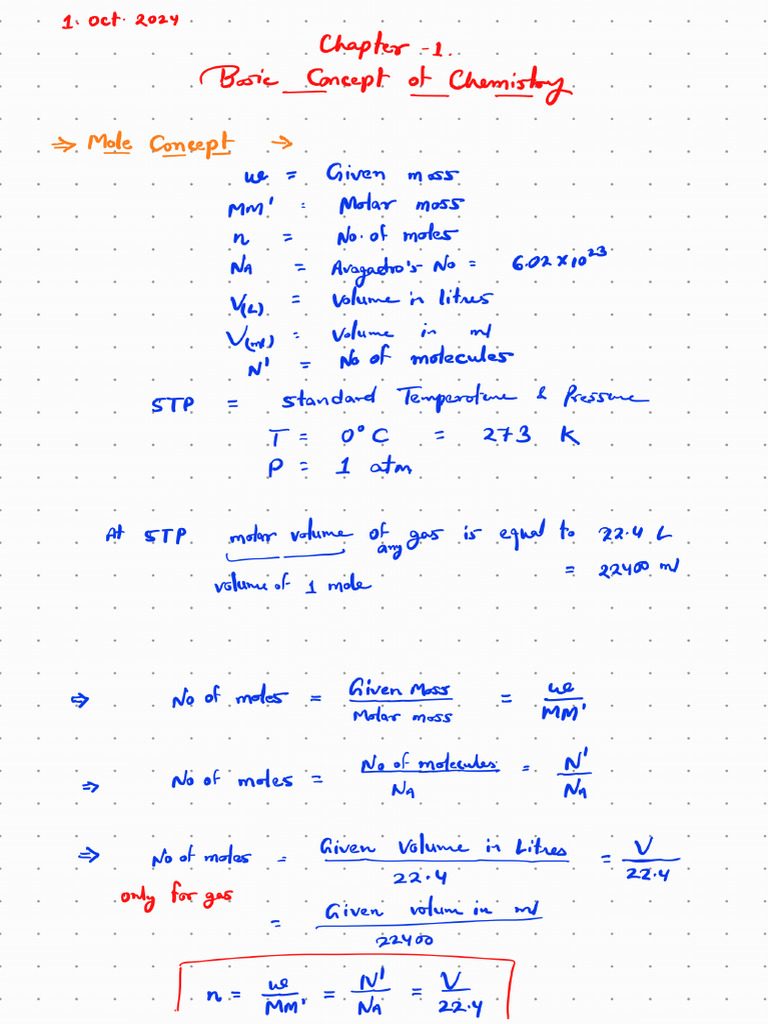 1. Oct. 2024
Chapter -1.
Basic Concept of Chemistry
⇒ Mole Concept →
w = Given mass
MM' = Molar mass
n = No. of moles
NA = Avagadro's No = 6.02 × 10²³
V(L) = Volume in litres
V(ml) = Volume in ml
N' = No of molecules
STP = Standard Temperature & Pressure
T = 0°C = 273 K
P = 1 atm
At STP molar volume of any gas is equal to 22.4 L
volume of 1 mole = 22400 ml
⇒ No of moles = Given Mass / Molar mass = w / MM'
⇒ No of moles = No of molecules / NA = N' / NA
⇒ No of moles = Given Volume in Litres / 22.4 = V / 22.4
only for gas
= Given volum in ml / 22400
n = w / MM' = N' / NA = V / 22.4